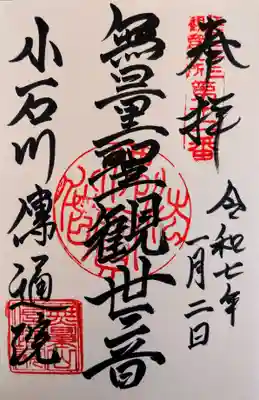 奉拝
令和七年
一月二日
無量聖観世音
小石川傳通院